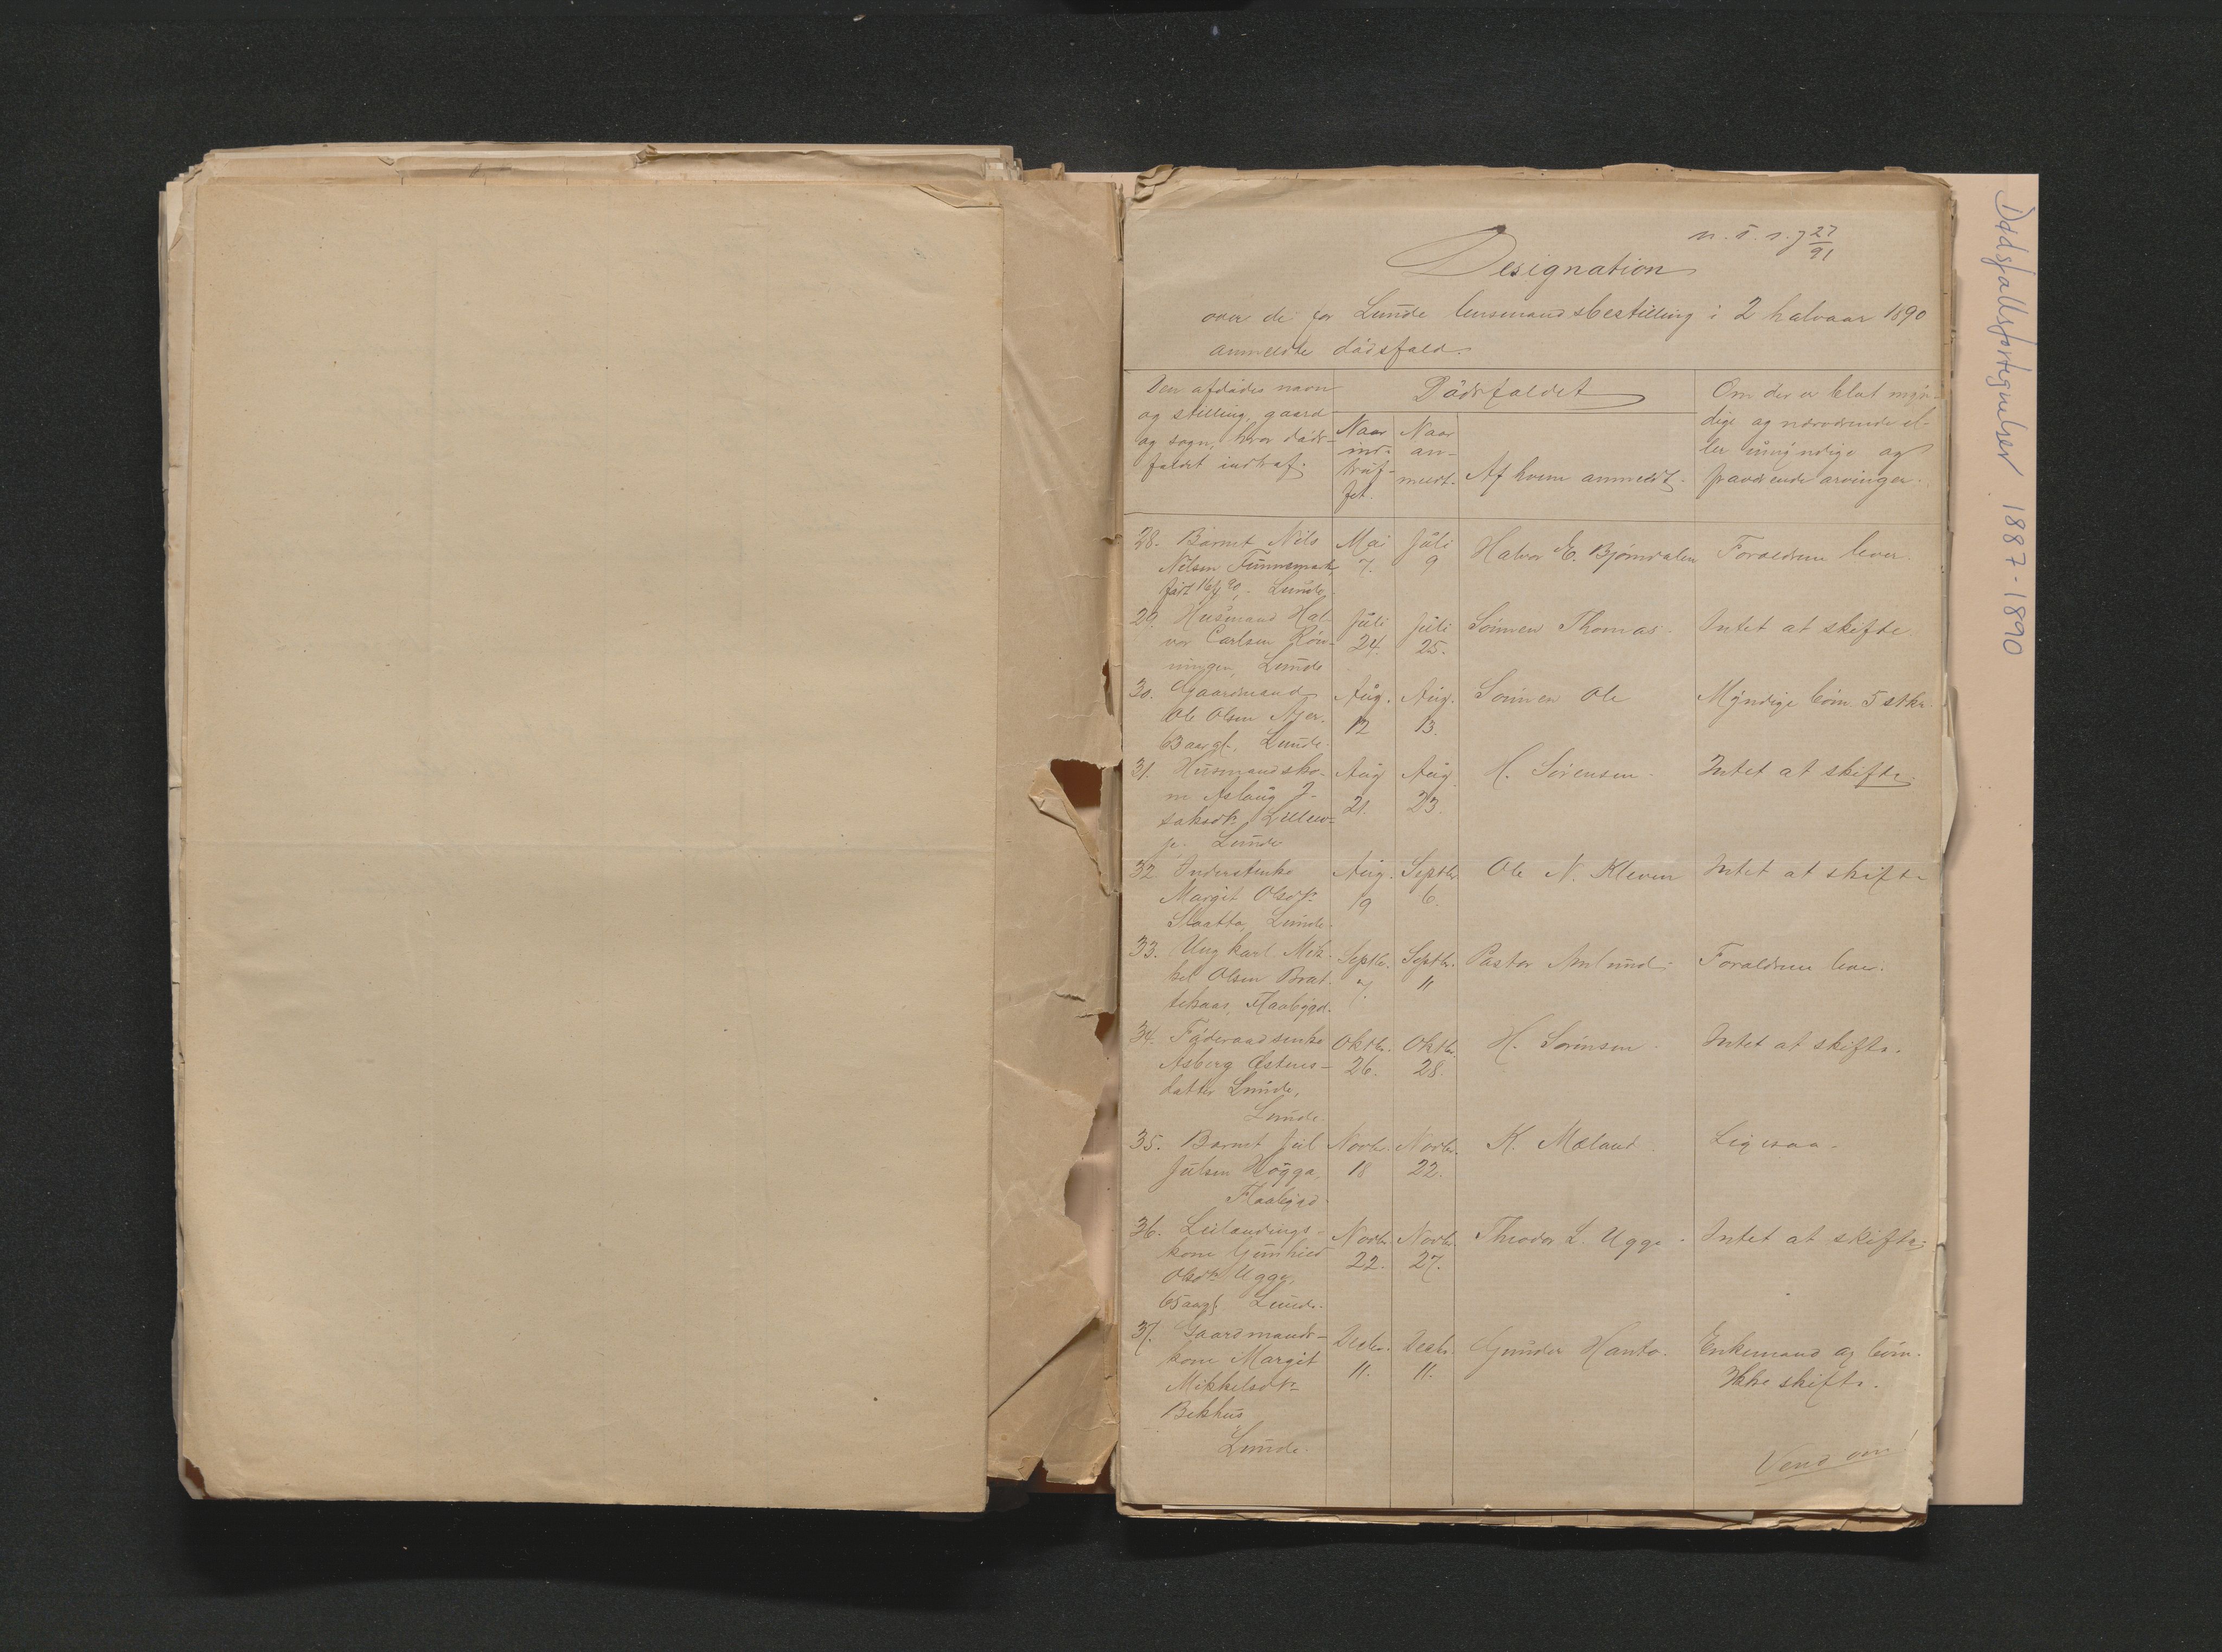 27
91
Designation
over de for Lunde lensmandsbestilling i 2 halvaar 1890
anmeldte dödsfald.
Den afdödes navn
og stilling, gaard
og sogn, hvor döds-
faldet indtraf.
Dödsfaldet
Naar
ind-
truf-
fet.
Naar
an-
meldt.
Af hvem anmeldt.
Om der er blot myn-
dige og nærværende el-
ler umyndige og
fraværende arvinger.
28. Barnet Nils
Nilsen
Lunde
Mai
7.
Juli
9
Halvor E. Bjørndalen
Forældrene lever.
29. Husmand Hal-
vor Carlsen Rön-
ningen, Lunde
Juli
24.
Juli
25.
Sönnen Thomas.
Intet at skifte
30. Gaardmand
Ole Olsen
Lunde.
Aug.
12
Aug.
13.
Sönnen Ole
Myndige börn 5 stkr.
31. Husmandsko-
ne Aslaug I-
saksdtr.
Lunde
Aug
21.
Aug
23.
H. Sörensen.
Intet at skifte.
32. Inderstenke
Margit Olsdtr.
Slaatta, Lunde.
Aug.
19
Septbr
6.
Ole N. Kleven
Intet at skifte
33. Ungkarl Mik-
kel Olsen Brat-
tekaas, Flaabygd.
Septbr.
7.
Septbr.
11
Pastor Amlund.
Forældrene lever.
34. Föderaadsenke
Asberg Østens-
datter Lunde,
Lunde
Oktbr.
26.
Oktbr.
28.
H. Sörensen.
Intet at skifte.
35. Barnet Juel
Julsen Hogga,
Flaabygd.
Novbr.
18
Novbr.
22.
K. Mæland.
Ligesaa.
36. Leilændings-
kone Gunhild
Olsdtr. Ugge,
65 aar gl. Lunde.
Novbr.
22.
Novbr.
27.
Theodor L. Ugge.
Intet at skifte.
37. Gaardmands-
kone Margit
Mikkelsdtr.
Bekhus
Lunde.
Decbr.
11.
Decbr.
11.
Gunder Hanto.
Enkemand og börn.
Ikke skifte.
Vend om!
Dødsfallsfortegnelser 1887-1890